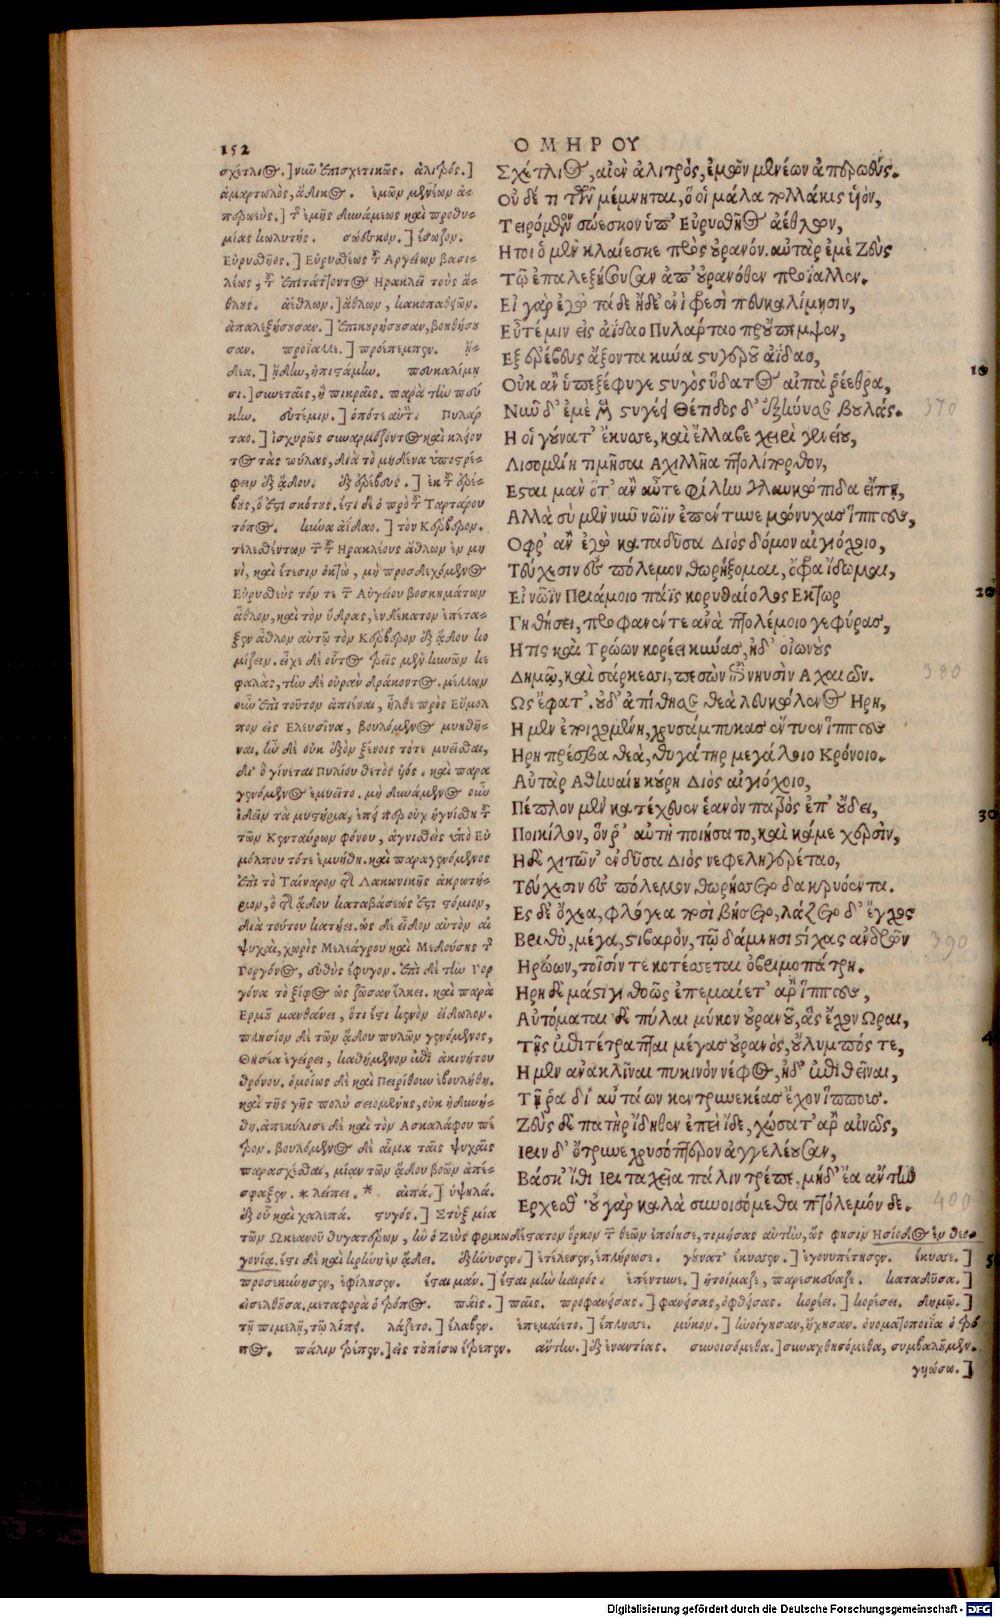 152
ΟΜΗΡΟΥ
σχέτλιος.] νῦν ἐπισχετικῶς. ἀλιτρός.]
ἁμαρτωλὸς, ἄδικος. ἐμῶν μενέων ἀ-
περωεύς.] τῆς ἐμῆς δυνάμεως καὶ προθυ-
μίας κωλυτής. σώεσκον.] ἔσωζον.
Εὐρυσθῆος.] Εὐρυσθέως τοῦ Ἀργείων βασι-
λέως, τοῦ ἐπιτάττοντος Ἡρακλεῖ τοὺς ἄ-
θλους. ἀέθλων.] ἄθλων, κακοπαθειῶν.
ἀπαλεξήσουσαν.] ἐπικουρήσουσαν, βοηθήσου
σαν. προΐαλλε.] προέπεμπεν. ᾔ-
δεα.] ᾔδειν, ἠπιστάμην. πευκαλίμη
σι.] συνεταῖς, ἢ πικραῖς. παρὰ τὴν πεύ
κην. εὖτέ μιν.] ὁπότε αὐτόν. Πυλάρ
ταο.] ἰσχυρῶς συναρμόζοντος καὶ κλείον
τος τὰς πύλας, διὰ τὸ μηδένα ὑποστρέ-
φειν ἐξ ᾅδου. ἐξ ἐρέβους.] ἐκ τοῦ ἐρέ-
βους, ὅ ἐστι σκότους. ἔστι δὲ ὁ πρὸ τοῦ Ταρτάρου
τόπος. κύνα ἀΐδαο.] τὸν Κέρβερον.
τελεσθέντων τῶν τοῦ Ἡρακλέους ἄθλων ἐν μη
νὶ, καὶ ἔτεσιν ὀκτὼ, μὴ προσδεχόμενος
Εὐρυσθεὺς τόν τε τῶν Αὐγείου βοσκημάτων
ἆθλον, καὶ τὸν ὕδρας, ἑνδέκατον ἐπέτα-
ξεν ἆθλον αὐτῷ τὸν Κέρβερον ἐξ ᾅδου κο
μίζειν. εἶχε δὲ οὗτος τρεῖς μὲν κυνῶν κε
φαλὰς, τὴν δὲ οὐρὰν δράκοντος. μέλλων
οὖν ἐπὶ τοῦτον ἀπιέναι, ἦλθε πρὸς Εὔμολ
πον εἰς Ἐλευσῖνα, βουλόμενος μυηθῆ-
ναι, ἦν δὲ οὐκ ἐξὸν ξένοις τότε μυεῖσθαι,
δι' ὃ γίνεται Πυλίου θετὸς υἱός. καὶ παρα
γενόμενος ἐμυεῖτο. μὴ δυνάμενος οὖν
ἰδεῖν τὰ μυστήρια, ἐπεί περ οὐχ ἡγνίσθη τῶν
τῶν Κενταύρων φόνον, ἁγνισθεὶς ὑπὸ Εὐ
μόλπου τότε ἐμυήθη. καὶ παραγενόμενος
ἐπὶ τὸ Ταίναρον τῆς Λακωνικῆς ἀκρωτή-
ριον, ὅ τῆς ᾅδου καταβάσεώς ἐστι στόμιον,
διὰ τούτου κατῄει. ὡς δὲ εἶδον αὐτὸν αἱ
ψυχαὶ, χωρὶς Μελεάγρου καὶ Μεδούσης τῆς
Γοργόνος, εὐθὺς ἔφυγον. ἐπὶ δὲ τὴν Γορ
γόνα τὸ ξίφος ὡς ζῶσαν ἕλκει. καὶ παρὰ
Ἑρμοῦ μανθάνει, ὅτι ἔστι κενὸν εἴδωλον.
πλησίον δὲ τῶν ᾅδου πυλῶν γενόμενος,
Θησέα ἐγείρει, καθήμενον ἐπὶ ἀκινήτου
θρόνου. ὁμοίως δὲ καὶ Πειρίθουν ἐβουλήθη.
καὶ τῆς γῆς πολὺ σειομένης, οὐκ ἠδυνή-
θη, ἀπεκύλισε δὲ καὶ τὸν Ἀσκαλάφου πέ
τρον. βουλόμενος δὲ αἷμα ταῖς ψυχαῖς
παρασχέσθαι, μίαν τῶν ᾅδου βοῶν ἀπέ-
σφαξεν. * λείπει. * αἰπά.] ὑψηλά.
ἐξ οὗ καὶ χαλεπά. στυγός.] Στὺξ μία
Σχέτλιος, αἰὲν ἀλιτρὸς, ἐμῶν μενέων ἀπερωεύς.
Οὐδέ τι τῶν μέμνηται, ὅ οἱ μάλα πολλάκις υἱὸν,
Τειρόμενον σώεσκον ὑπ' Εὐρυσθῆος ἀέθλων,
Ητοι ὁ μὲν κλαίεσκε πρὸς οὐρανόν. αὐτὰρ ἐμὲ Ζεὺς
Τῷ ἐπαλεξήσουσαν ἀπ' οὐρανόθεν προΐαλλεν.
Εἰ γὰρ ἐγὼ τάδε ᾔδε' ἐνὶ φρεσὶ πευκαλίμησιν,
Εὖτέ μιν εἰς ἀΐδαο Πυλάρταο προὔπεμψεν,
Εξ ἐρέβευς ἄξοντα κύνα στυγεροῦ ἀΐδαο,
Οὐκ ἂν ὑπεξέφυγε στυγὸς ὕδατος αἰπὰ ῥέεθρα,
Νῦν δ' ἐμὲ μὲν στυγέει Θέτιδος δ' ἐξήνυσε βουλάς.
Η οἱ γούνατ' ἔκυσσε, καὶ ἔλλαβε χειρὶ γενείου,
Λισσομένη τιμῆσαι Αχιλλῆα πτολίπορθον,
Εσται μὰν ὅτ' ἂν αὖτε φίλην γλαυκώπιδα εἴπῃ,
Αλλὰ σὺ μὲν νῦν νῶϊν ἐπέντυνε μώνυχας ἵππους,
Οφρ' ἂν ἐγὼ καταδῦσα Διὸς δόμον αἰγιόχοιο,
Τεύχεσιν ἐς πόλεμον θωρήξομαι, ὄφρα ἴδωμαι,
Εἰ νῶϊν Πριάμοιο πάϊς κορυθαίολος Εκτωρ
Γηθήσει, προφανέντε ἀνὰ πτολέμοιο γεφύρας,
Η τις καὶ Τρώων κορέει κύνας, ἠδ' οἰωνοὺς
Δημῷ, καὶ σάρκεσσι, πεσὼν ἐπὶ νηυσὶν Αχαιῶν.
Ως ἔφατ'. οὐδ' ἀπίθησε θεὰ λευκώλενος Ηρη,
Η μὲν ἐποιχομένη, χρυσάμπυκας ἔντυεν ἵππους
Ηρη πρέσβα θεὰ, θυγάτηρ μεγάλοιο Κρόνοιο.
Αὐτὰρ Αθηναίη κούρη Διὸς αἰγιόχοιο,
Πέπλον μὲν κατέχευεν ἑανὸν παρὸς ἐπ' οὔδει,
Ποικίλον, ὅν ῥ' αὐτὴ ποιήσατο, καὶ κάμε χερσὶν,
Η δὲ χιτῶν' ἐνδῦσα Διὸς νεφεληγερέταο,
Τεύχεσιν ἐς πόλεμον θωρήσσετο δακρυόεντα.
Ες δ' ὄχεα, φλόγεα ποσὶ βήσετο, λάζετο δ' ἔγχος
Βριθὺ, μέγα, στιβαρὸν, τῷ δάμνησι στίχας ἀνδρῶν
Ηρώων, τοῖσίν τε κοτέσσεται ὀβριμοπάτρη.
Ηρη δὲ μάστιγι θοῶς ἐπεμαίετ' ἄρ' ἵππους,
Αὐτόμαται δὲ πύλαι μύκον οὐρανοῦ, ἃς ἔχον Ωραι,
Τῆς ἐπιτέτραπται μέγας οὐρανὸς, οὔλυμπός τε,
Η μὲν ἀνακλῖναι πυκινὸν νέφος, ἠδ' ἐπιθεῖναι,
Τῇ ῥα δι' αὐτάων κεντρηνεκέας ἔχον ἵππους.
Ζεὺς δὲ πατὴρ ἴδηθεν ἐπεὶ ἴδε, χώσατ' ἄρ' αἰνῶς,
Ιριν δ' ὄτρυνε χρυσόπτερον ἀγγελέουσαν,
Βάσκ' ἴθι Ιρι ταχεῖα πάλιν τρέπε, μηδ' ἔα ἄντην
Ερχεσθ' οὐ γὰρ καλὰ συνοισόμεθα πτόλεμόν δε.
10
20
30
370
380
390
400
τῶν Ὠκεανοῦ θυγατέρων, ἣν ὁ Ζεὺς φρικωδέστατον ὅρκον τῶν θεῶν ἐποίησε, τιμήσας αὐτὴν, ὥς φησιν Ησίοδος ἐν θεο-
γονίᾳ. ἔστι δὲ καὶ κρήνη ἐν ᾅδει. ἐξήνυσεν.] ἐτέλεσεν, ἐπλήρωσε. γούνατ' ἔκυσσεν.] ἐγονυπέτησεν. ἔκυσσε.]
προσεκύνησεν, ἐφίλησεν. ἔσται μάν.] ἔσται μὴν καιρός. ἐπέντυνε.] ἡτοίμαζε, παρεσκεύαζε. καταδῦσα.]
εἰσελθοῦσα. μεταφορὰ ὁ τρόπος. πάϊς.] παῖς. προφανείσας.] φανείσας, ὀφθείσας. κορέει.] κορέσει. δημῷ.]
τῇ πιμελῇ, τῷ λίπει. λάζετο.] ἔλαβεν. ἐπεμαίετο.] ἔπλησσε. μύκον.] ἠνοίγησαν, ἤχησαν. ὀνοματοποιΐα ὁ τρό
πος. πάλιν τρέπεν.] εἰς τοὐπίσω ἔτρεπεν. ἄντην.] ἐξ ἐναντίας. συνοισόμεθα.] συναχθησόμεθα, συμβαλοῦμεν.
γνώσω.]
Digitalisierung gefördert durch die Deutsche Forschungsgemeinschaft - DFG